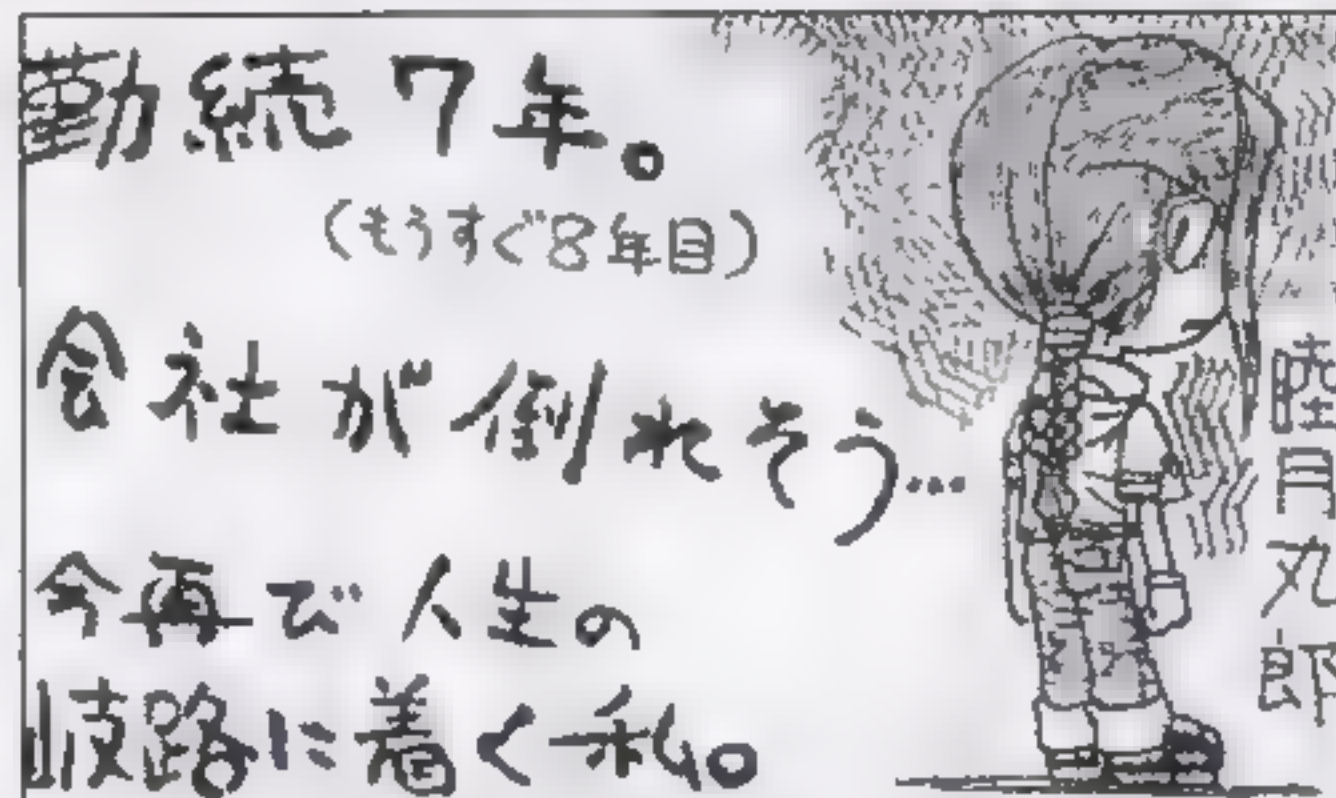 勤続7年。
(もうすぐ8年目)
会社が倒れそう…
今再び人生の
岐路に着く私。
睦月丸郎